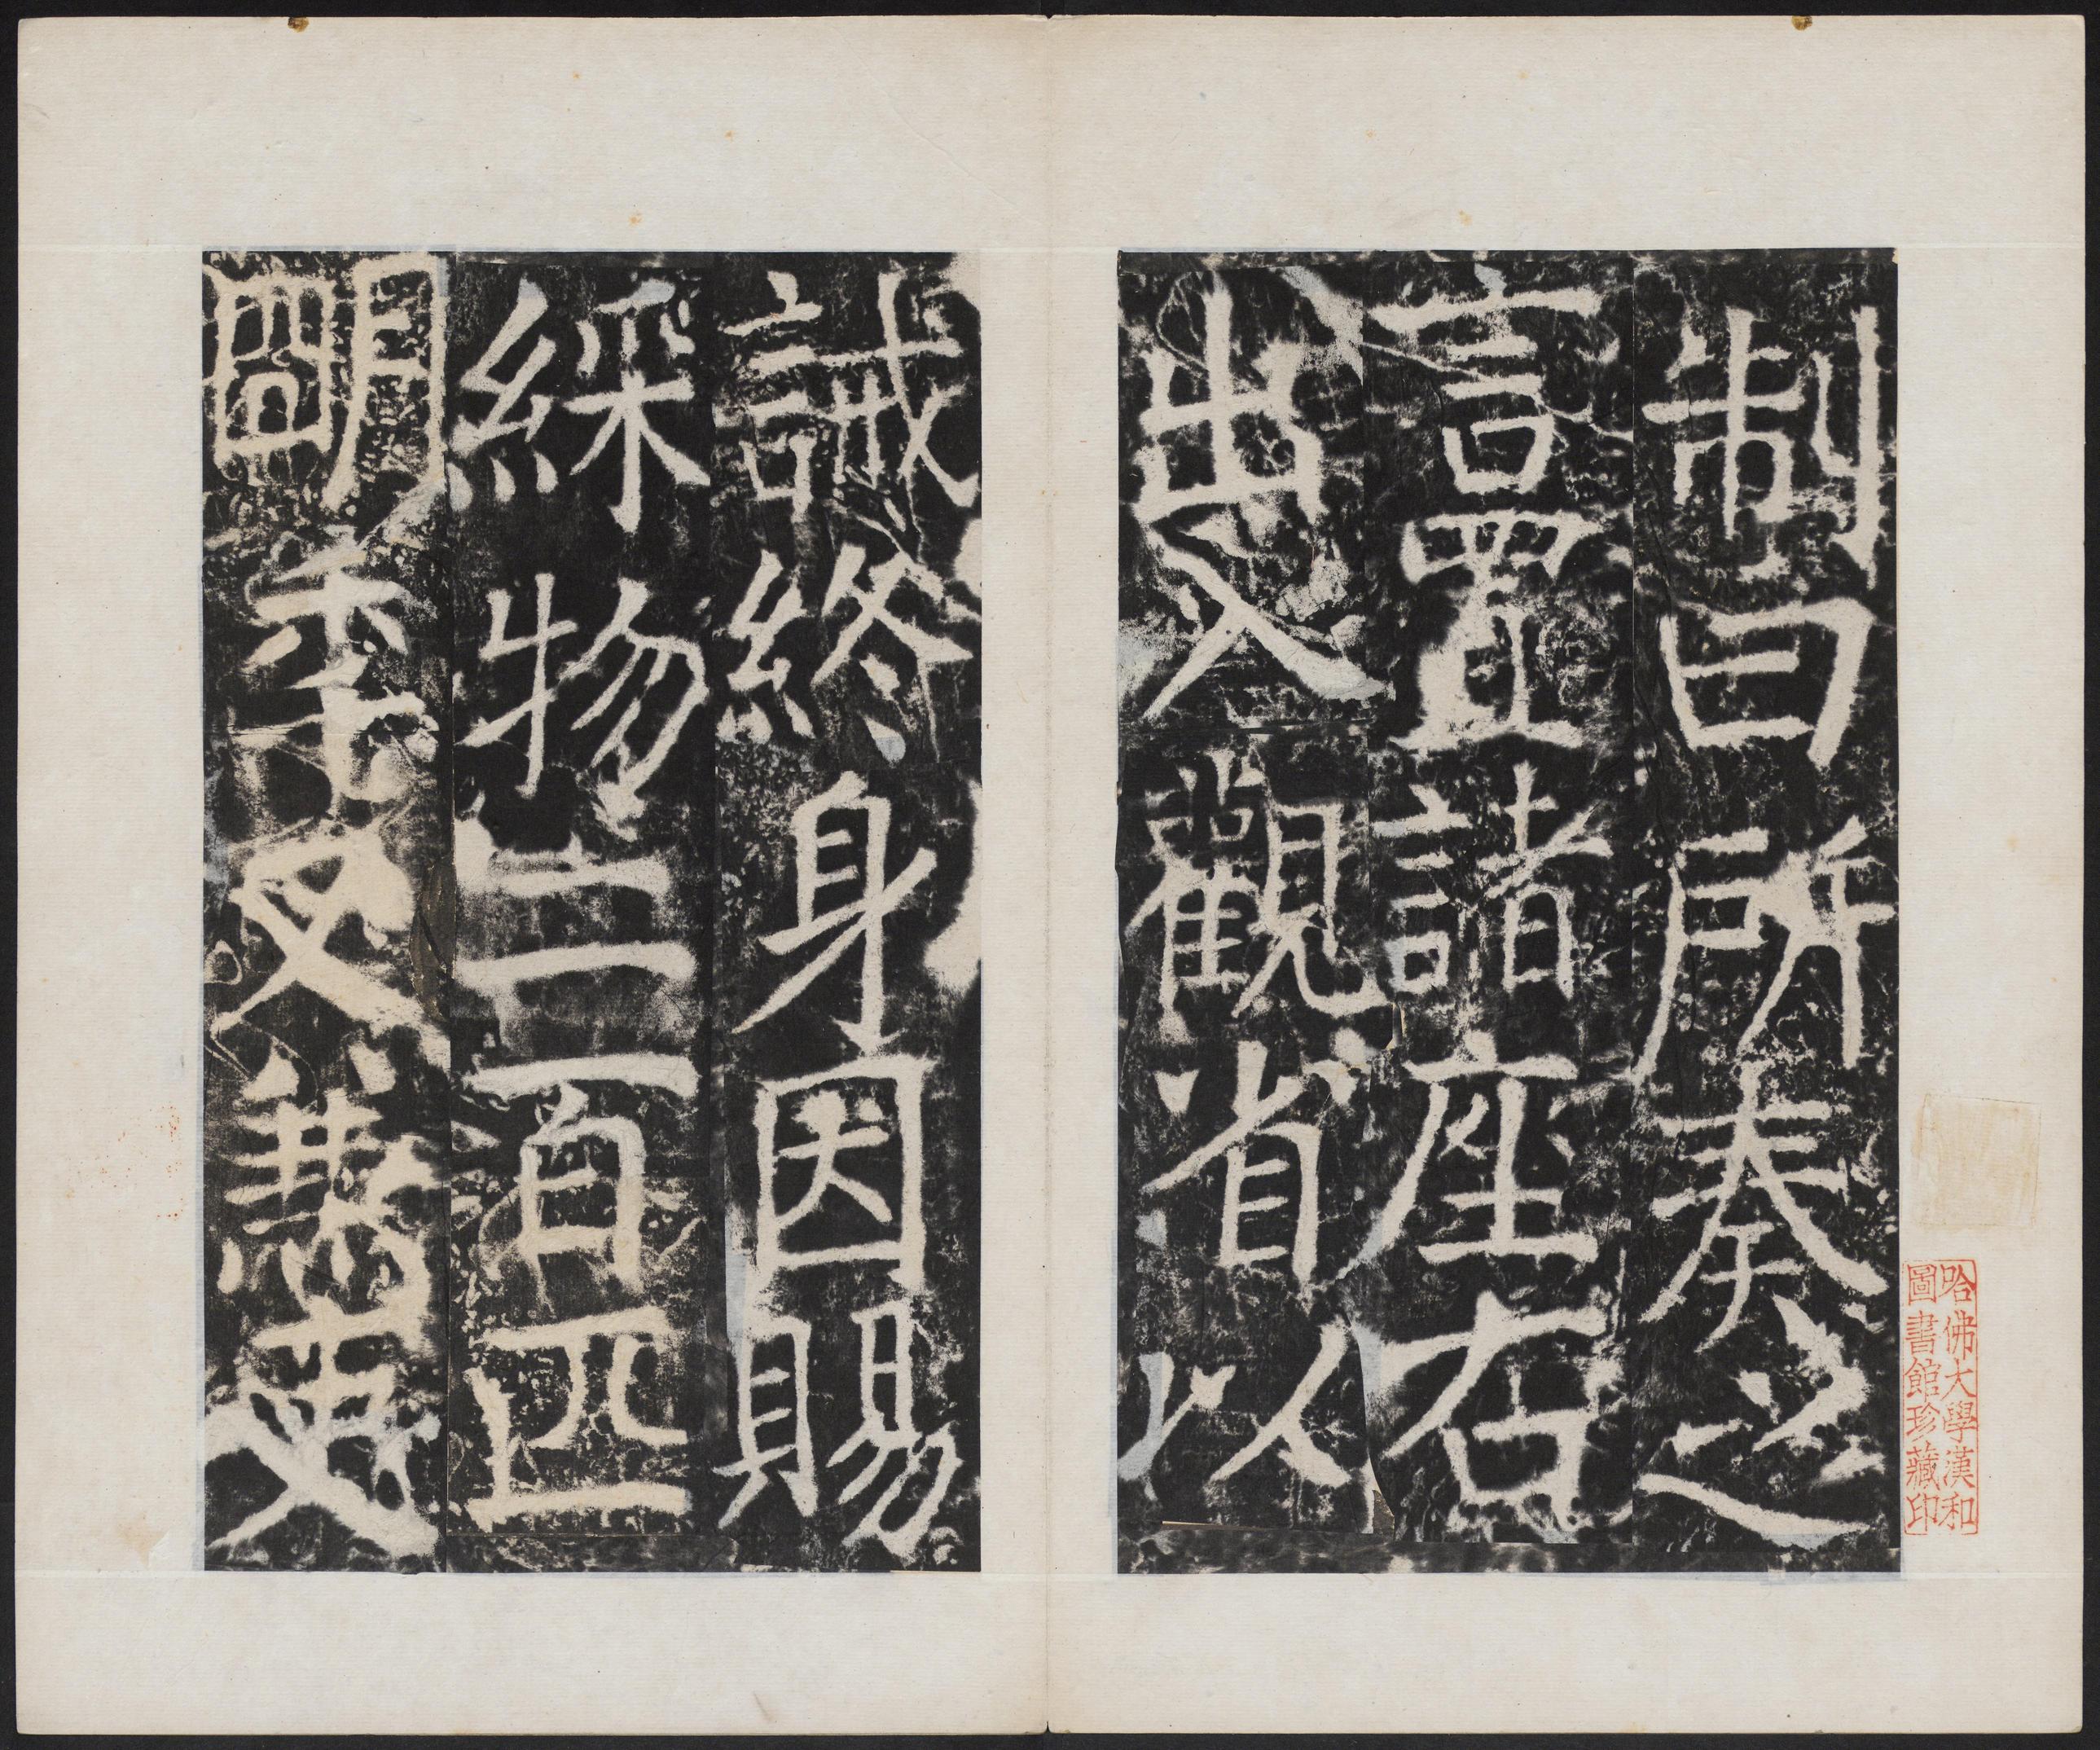 制曰所奏之
言置諸座右
出入觀省以
誡終身因賜
綵物二百匹
明年又兼吏
哈佛大學漢和
圖書館珍藏印